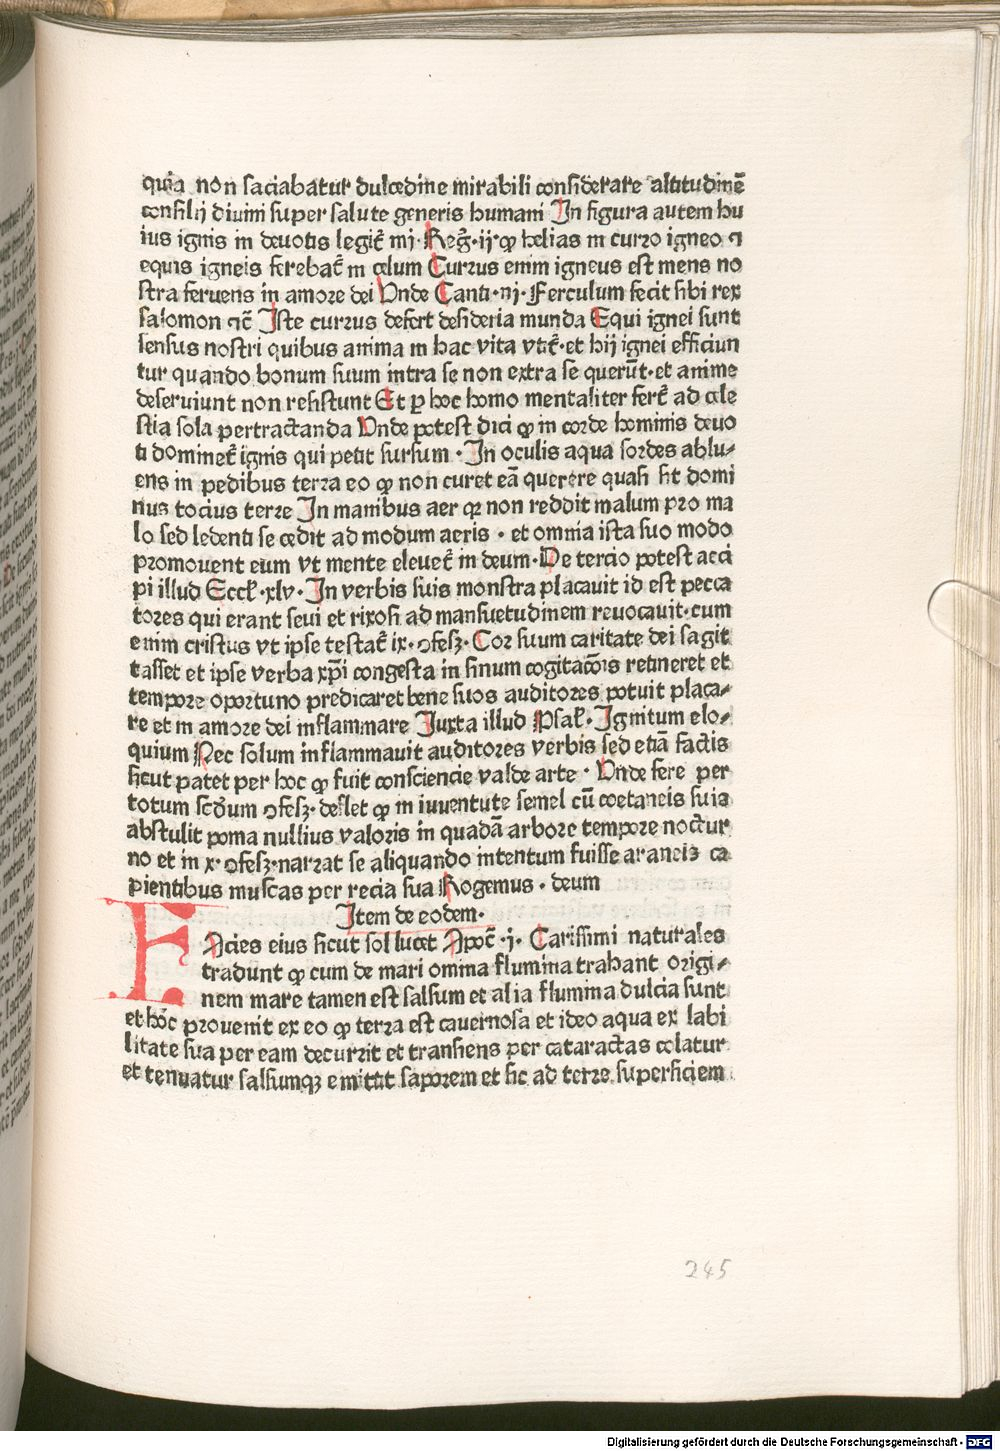 quia non saciabatur dulcedine mirabili considerare altitudinē
consilij diuini super salute generis humani In figura autem hu
ius ignis in deuotis legit̄ iiij· Reg̃· ij· ꝙ helias in curro igneo ⁊
equis igneis ferebat̄ in celum Currus enim igneus est mens no
stra feruens in amore dei Vnde Canti· iij· Ferculum fecit sibi rex
salomon ⁊c̄ Iste currus defert desideria munda Equi ignei sunt
sensus nostri quibus anima in hac vita vtit̄· et hij ignei efficiun
tur quando bonum suum intra se non extra se querūt· et anime
deseruiunt non resistunt Et ꝑ hoc homo mentaliter fert̄ ad cele
stia sola pertractanda Vnde potest dici ꝙ in corde hominis deuo
ti dominet̄ ignis qui petit sursum · In oculis aqua sordes ablu⸗
ens in pedibus terra eo ꝙ non curet eā querere quasi sit domi
nus tocius terre In manibus aer ꝙ non reddit malum pro ma
lo sed ledenti se cedit ad modum aeris · et omnia ista suo modo
promouent eum vt mente eleuet̄ in deum· De tercio potest acci
pi illud Eccl̄· xlv· In verbis suis monstra placauit id est pecca
tores qui erant seui et rixosi ad mansuetudinem reuocauit· cum
enim cristus vt ipse testat̄ ix· ꝯfesꝫ· Cor suum caritate dei sagit
tasset et ipse verba xp̄i congesta in sinum cogitacōis retineret et
tempore oportuno predicaret bene suos auditores potuit placa⸗
re et in amore dei inflammare Iuxta illud Psal̄· Ignitum elo⸗
quium Nec solum inflammauit auditores verbis sed etiā factis
sicut patet per hoc ꝙ fuit consciencie valde arte · Vnde fere per
totum scd̄um ꝯfesꝫ· deflet ꝙ in iuuentute semel cū coetaneis suis
abstulit poma nullius valoris in quadā arbore tempore noctur
no et in x· ꝯfesꝫ· narrat se aliquando intentum fuisse araneis ca
pientibus muscas per recia sua Rogemus · deum
Item de eodem·
FAcies eius sicut sol lucet Apoc̄ ·j· Carissimi naturales
tradunt ꝙ cum de mari omnia flumina trahant origi⸗
nem mare tamen est salsum et alia flumina dulcia sunt
et hoc prouenit ex eo ꝙ terra est cauernosa et ideo aqua ex labi
litate sua per eam decurrit et transiens per cataractas colatur
et tenuatur salsumqꝫ emittit saporem et sic ad terre superficiem
245
Digitalisierung gefördert durch die Deutsche Forschungsgemeinschaft - DFG